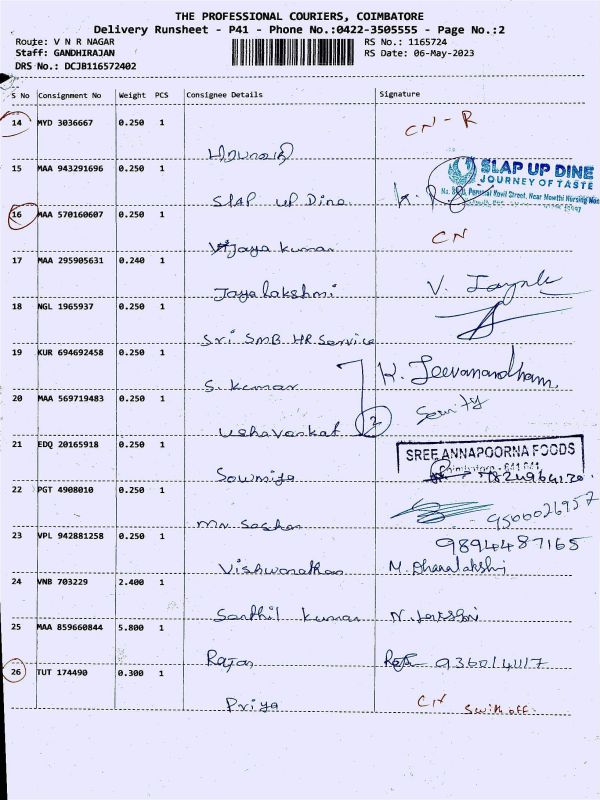 THE PROFESSIONAL COURIERS, COIMBATORE
Delivery Runsheet - P41 - Phone No.:0422-3505555 - Page No.:2
Route: V N R NAGAR
RS No.: 1165724
Staff: GANDHIRAJAN
RS Date: 06-May-2023
DRS No.: DCJB116572402
S No Consignment No Weight PCS Consignee Details Signature
14 MYD 3036667 0.250 1
CN - R
15 MAA 943291696 0.250 1
SLAP UP DINE
JOURNEY OF TASTE
Slap up Dine
16 MAA 570160607 0.250 1
CN
Vijaya kumar
17 MAA 295905631 0.240 1
Jayalakshmi
18 NGL 1965937 0.250 1
Sri SMB HR Service
19 KUR 694692458 0.250 1
K. Jeevanandham
S. kumar
20 MAA 569719483 0.250 1
2
21 EDQ 20165918 0.250 1
SREE ANNAPOORNA FOODS
Sowmiya
22 PGT 4908010 0.250 1
9500026957
23 VPL 942881258 0.250 1
9894487165
M. Dhanalakshmi
24 VNB 703229 2.400 1
Senthil kumar
25 MAA 859660844 5.800 1
Rajan
26 TUT 174490 0.300 1
CN
Priya